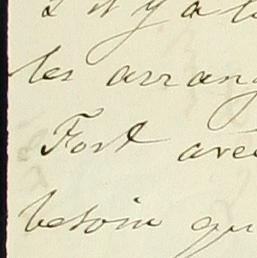 il y a l
les arrang
Fort avec
besoin qu